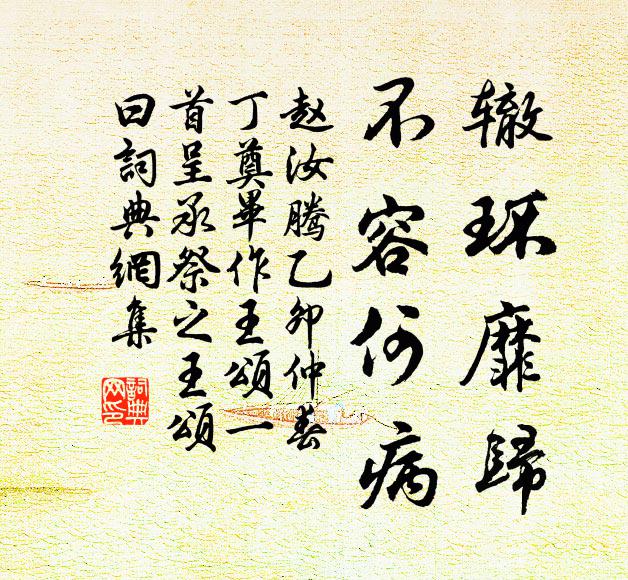 辙环靡歸
不容何病
赵汝騰乙卯仲春
丁奠畢作王頌一
首呈承祭之王頌
曰詞典網集
詞典
网印